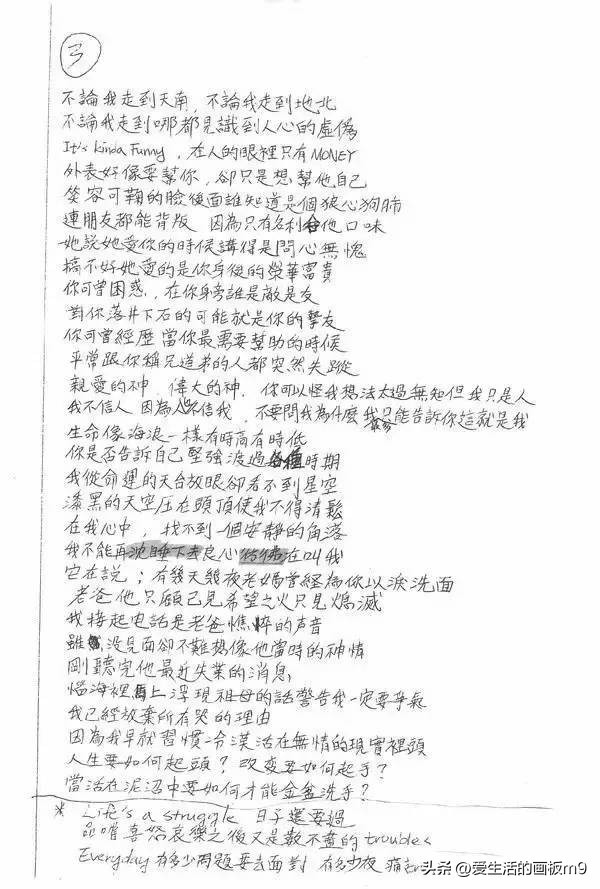 3
不論我走到天南,不論我走到地北
不論我走到哪都見識到人心的虛偽
It's kinda Funny,在人的眼裡只有MONEY
外表好像要幫你,卻只是想幫他自己
笑容可鞠的臉後面誰知道是個狼心狗肺
連朋友都能背叛 因為只有名利合他口味
她說她愛你的時候講得是問心無愧
搞不好她愛的是你身後的榮華富貴
你可曾困惑,在你身旁誰是敵是友
對你落井下石的可能就是你的摯友
你可曾經歷當你最需要幫助的時候
平常跟你稱兄道弟的人都突然失蹤
親愛的神,偉大的神,你可以怪我想法太過無知但我只是人
我不信人 因為人不信我,不要問我為什麼我只能告訴你這就是我
生命像海浪一樣有時高有時低
你是否告訴自己堅強渡過各種時期
我從命運的天台放眼卻看不到星空
漆黑的天空壓在頭頂使我不得清鬆
在我心中,找不到一個安靜的角落
我不能再沈睡下去良心彷彿在叫我
它在説;有幾天幾夜老媽曾経為你以淚洗面
老爸他只顧己見希望之火只見熄滅
我接起電話是老爸憔悴的声音
雖 没見面卻不難想像他當時的神情
剛聽完他最近失業的消息
惱海裡馬上浮現祖母的話警告我一定要爭氣
我已經放棄所有哭的理由
因為我早就習慣一令漠活在無情的現實裡頭
人生要如何起頭?改変要如何起手?
當活在泥沼中要如何才能金盆洗手?
* Life's a struggle 日子還要過
品嚐喜怒哀樂之後又是數不盡的troubles
Everyday 有多少問題要去面對 有多少夜 痛
头条@爱生活的画板m9